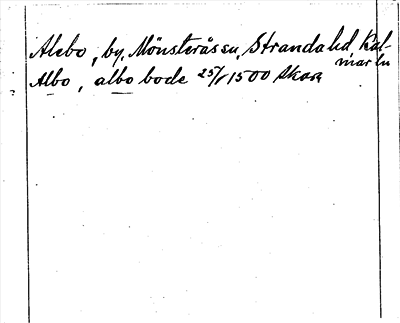 Alebo, by, Mönsterås sn, Stranda hd, Kal-
mar ln
Albo, albo bode 25/1 1500 Skoa